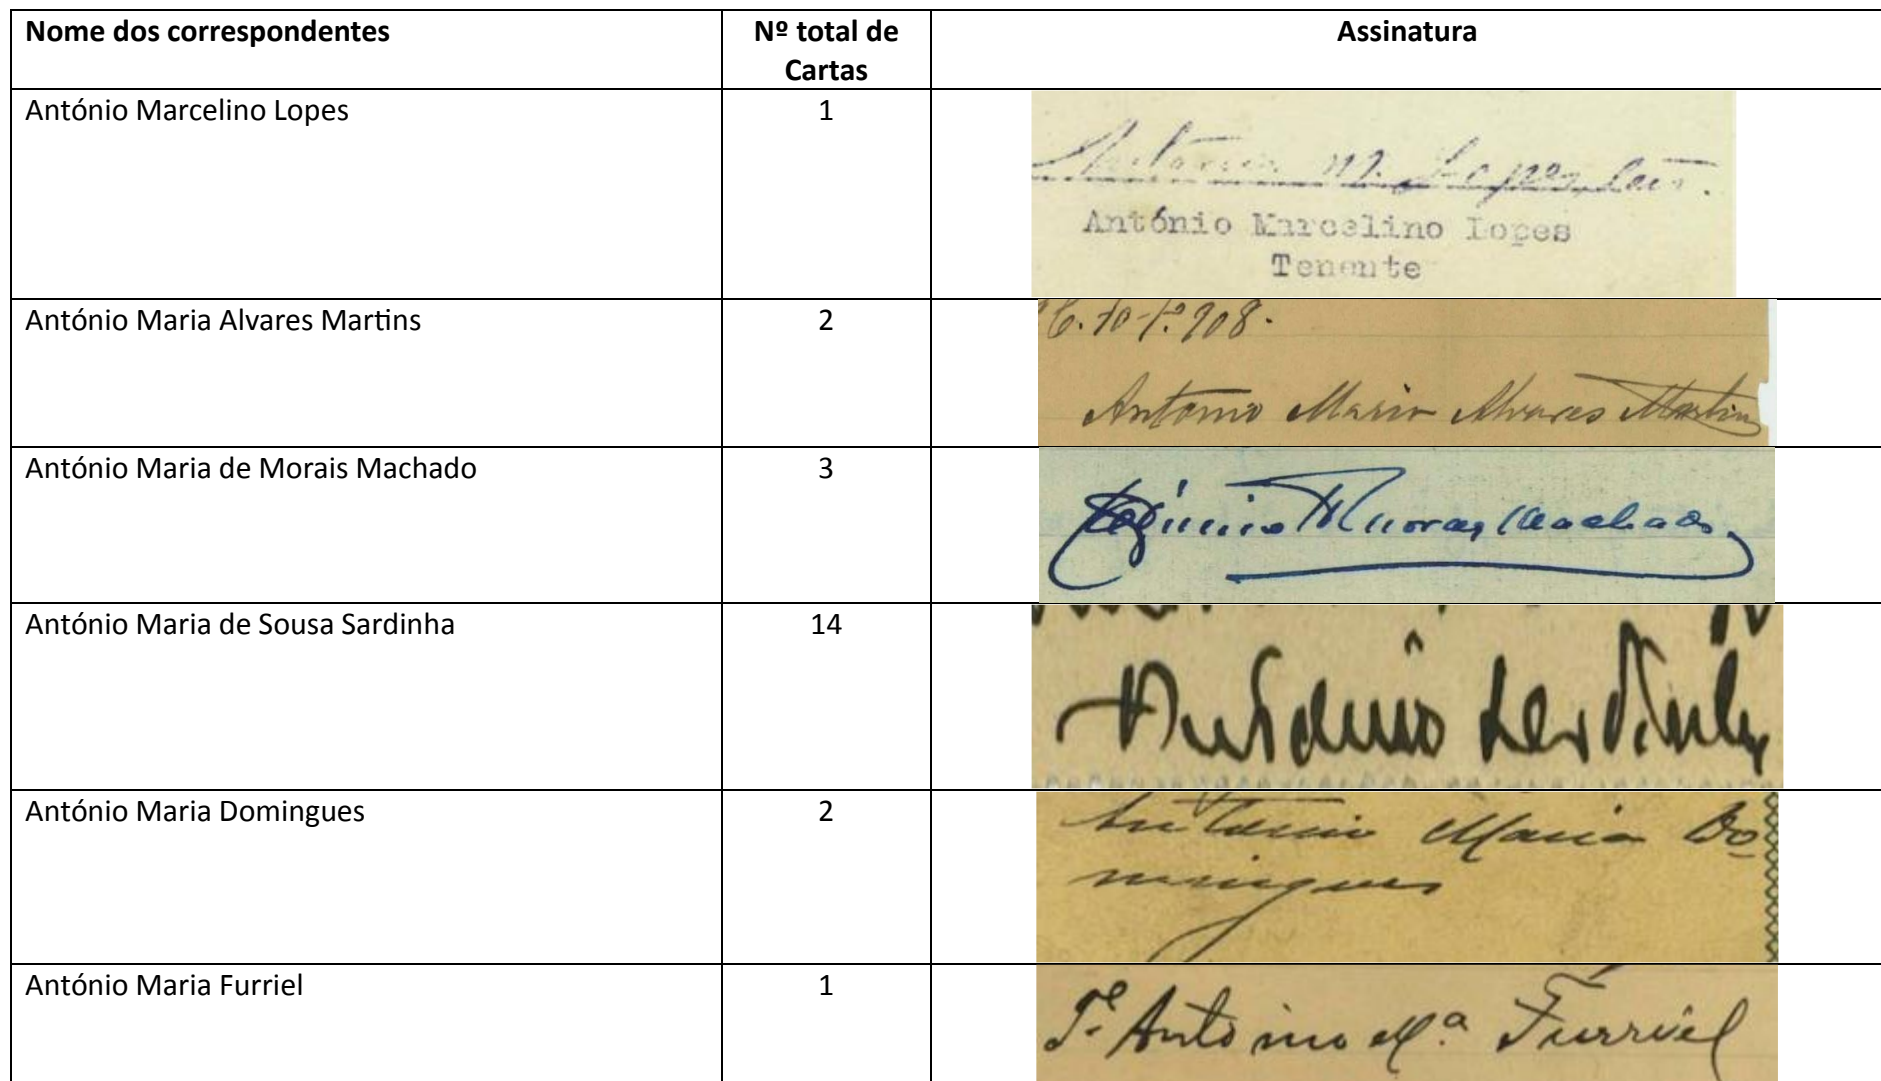 Nome dos correspondentes
Nº total de
Cartas
Assinatura
António Marcelino Lopes
1
Antonio M. Lopes, ten.
António Marcelino Lopes
Tenente
António Maria Alvares Martins
2
908.
Antonio Maria Alvares Martins
António Maria de Morais Machado
3
Moraes Machado
António Maria de Sousa Sardinha
14
António Sardinha
António Maria Domingues
2
Antonio Maria Do
mingues
António Maria Furriel
1
Pe Antonio Mª Furriel